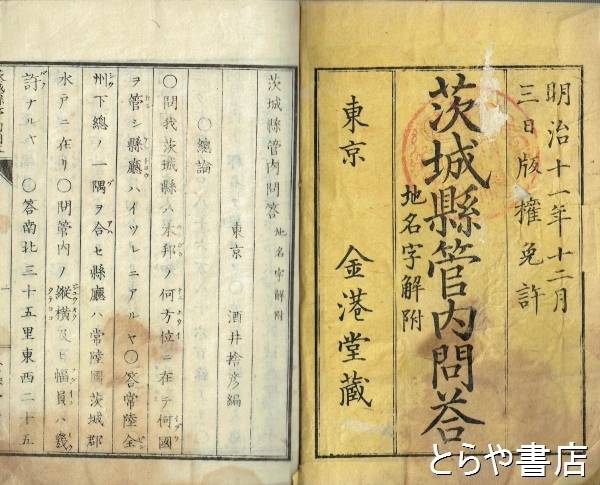 明治十一年十二月
三日版權免許
茨城縣管内問答
地名字解附
東京 金港堂藏
茨城縣管内問答 地名字解附
東京 酒井捨彦編
〇總論
〇問我茨城縣ハ本邦ノ何方位ニ在テ何國
ヲ管シ縣廳ハイツレニアルヤ〇答常陸全
州下總ノ一隅ヲ合セ縣廳ハ常陸國茨城郡
水戸ニ在リ〇問管内ノ縱横及ヒ幅員ハ幾
許ナルヤ〇答南北三十五里東西二十五
とらや書店